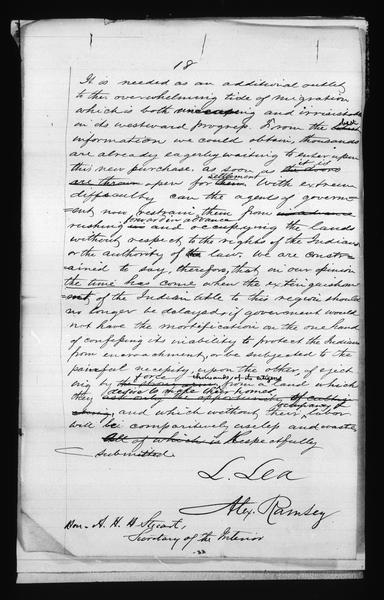 18
It is needed as an additional outlet
to the overwhelming tide of migration
which is both increasing and irresistible
in its westward progress. From the best
information we could obtain, thousands
are already eagerly waiting to enter upon
this new purchase, as soon as it is
the doors
are thrown open for settlement
them. With extreme
difficulty can the agents of govern-
ment now restrain them from
forward in advance
rushing in and occupying the lands
without respect to the rights of the Indians
or the authority of the law. We are constr-
ained to say, therefore, that in our opinion
the time has come when the extinguishm-
ent of the Indian title to this region should
no longer be delayed, if government would
not have the mortification on the one hand
of confessing its inability to protect the Indians
from encroachment, or be subjected to the
painful necessity, upon the other, of eject-
ing by force thousands of its citizens
from a land which
they desire to make their homes,
occupancy &
and which without their labor
will be comparatively useless and waste.
All of which is Respectfully
submitted.
L. Lea
Alex. Ramsey
Hon. A. H. H. Stuart,
Secretary of the Interior